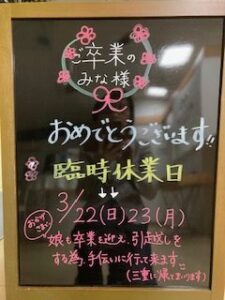 ご卒業の
みな様
おめでとうございます!!
臨時休業日
↓↓
3/22(日)23(月)
おかげさまで
娘も卒業を迎え、引越しを
する為、手伝いに行って来ます
(三重に帰ってまいります)